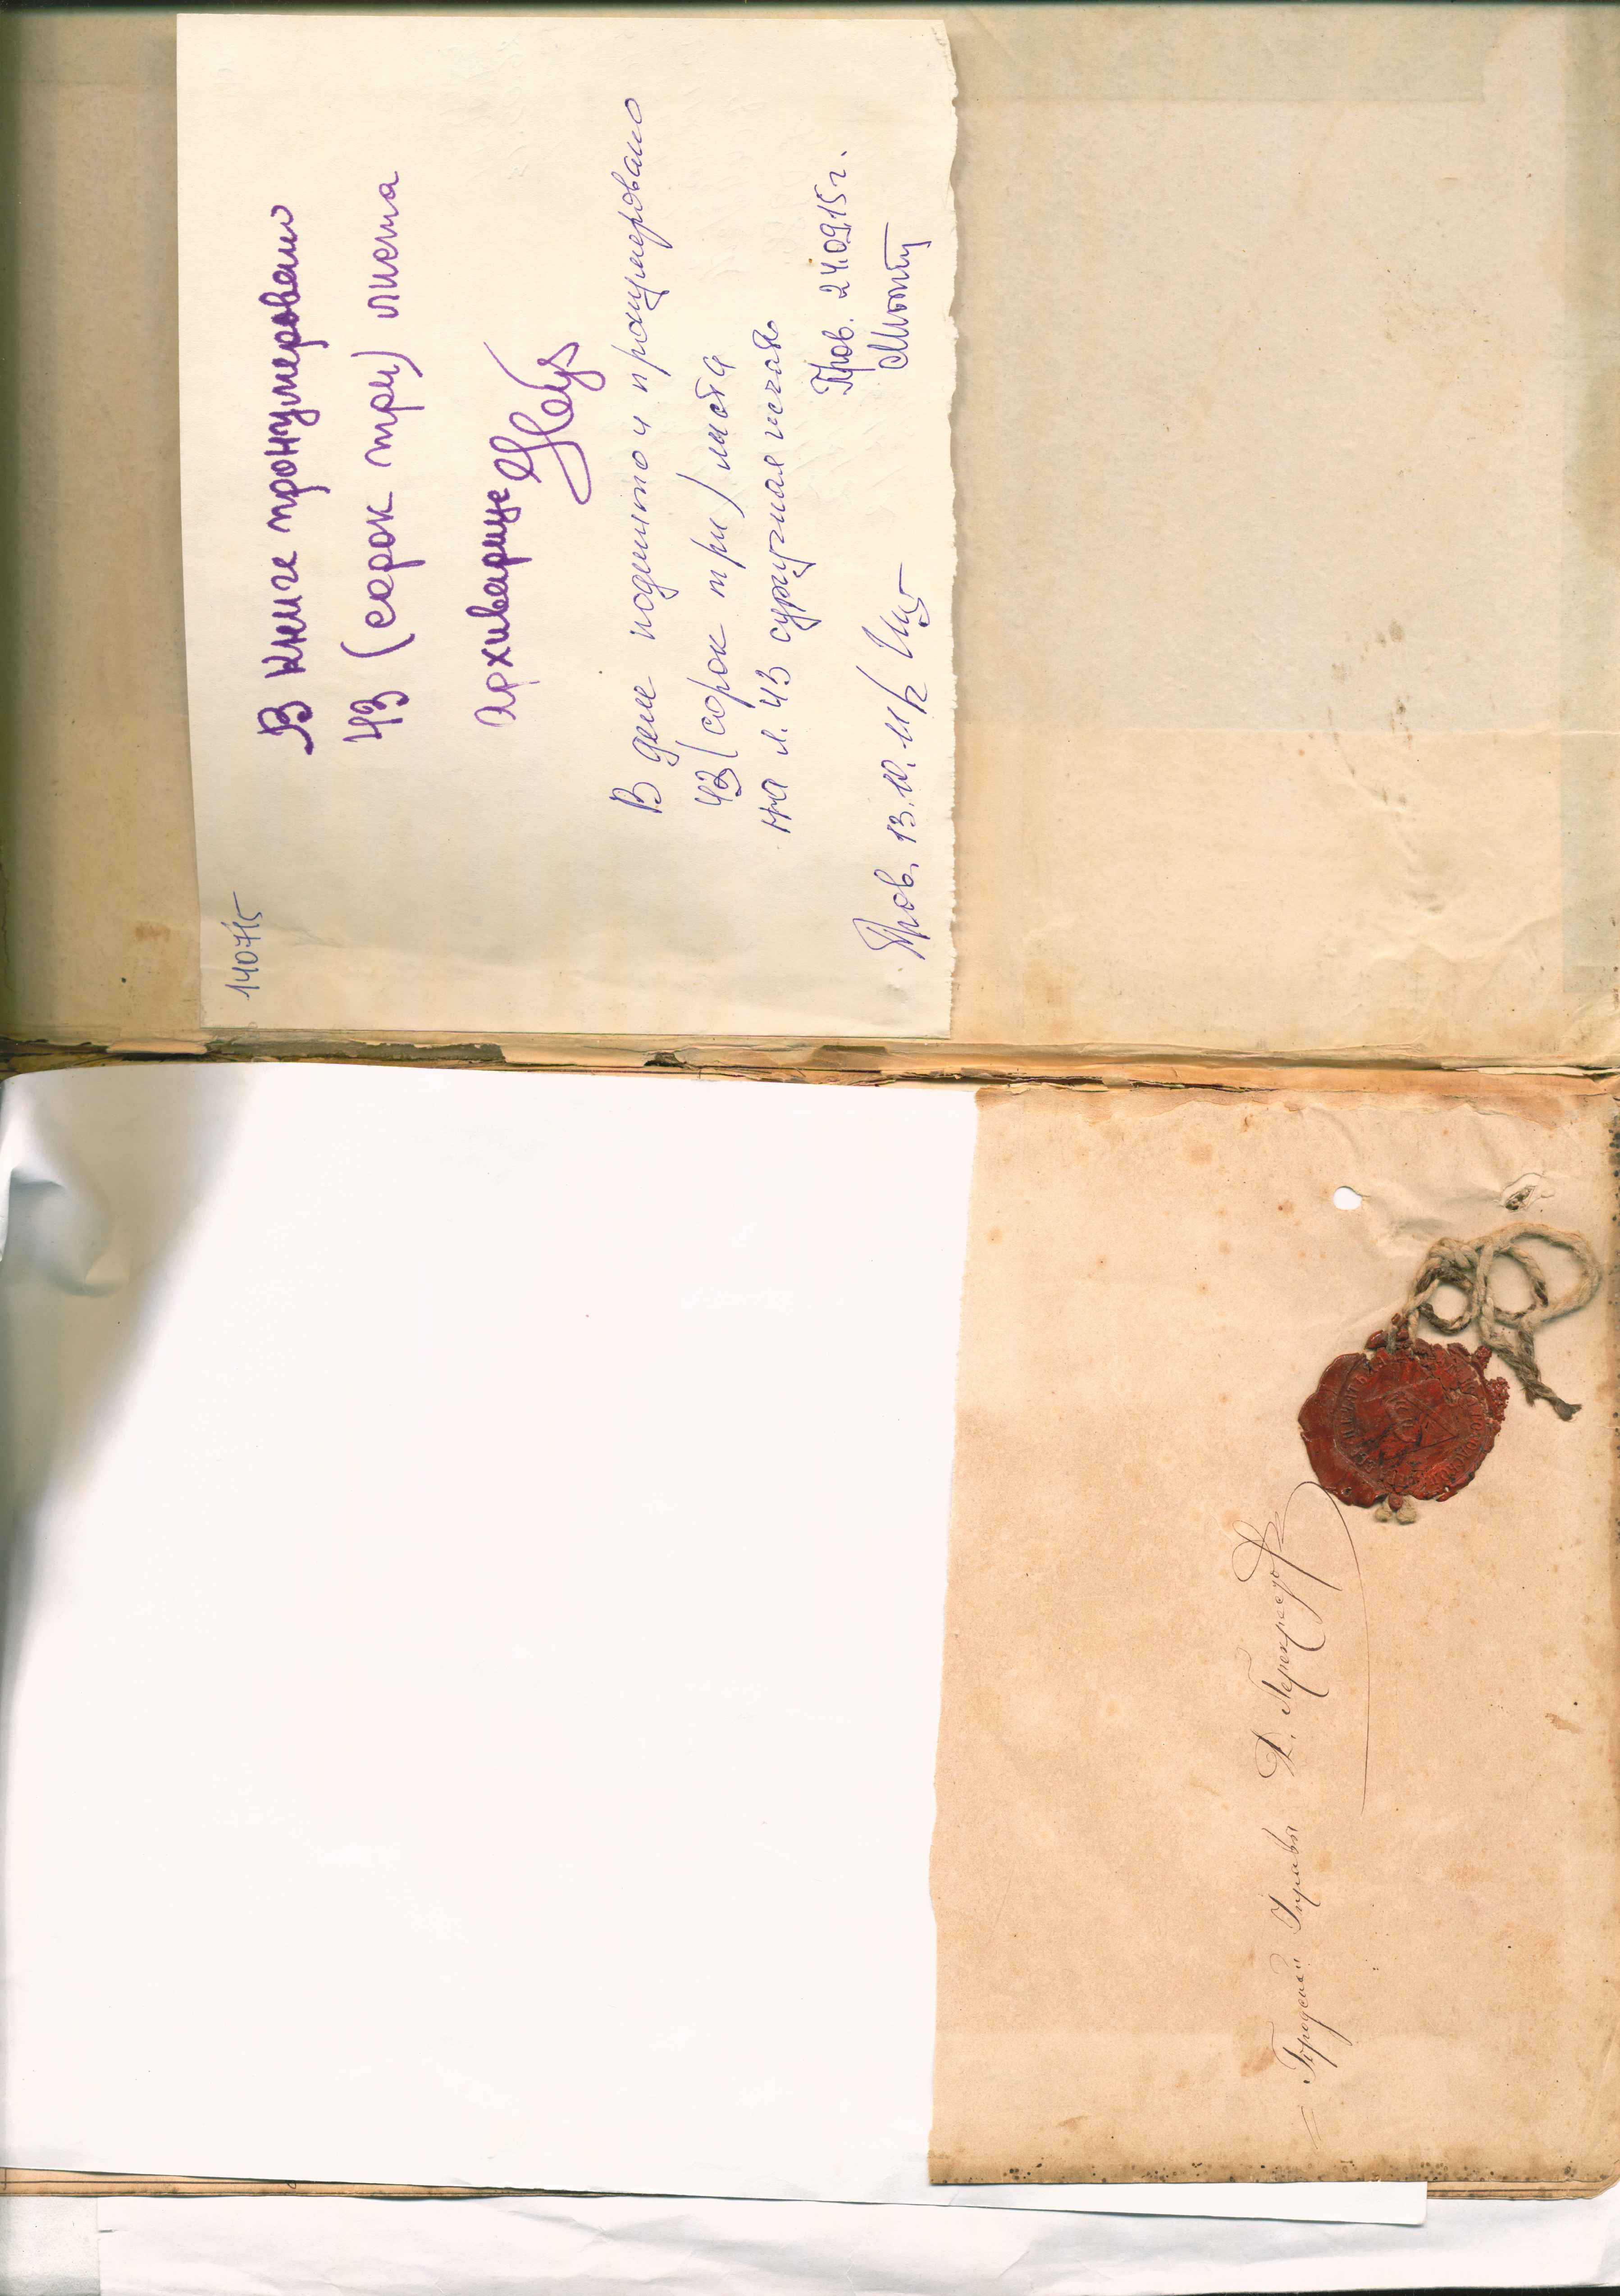 140715
В книге пронумеровано
43 (сорок три) листа
архивариус
В деле подшито и пронумеровано
43 (сорок три) листа
на л. 43 сургучная печать
Пров. 24.09.15 г.
Пров. 13.10.11
Городской Управы Д.